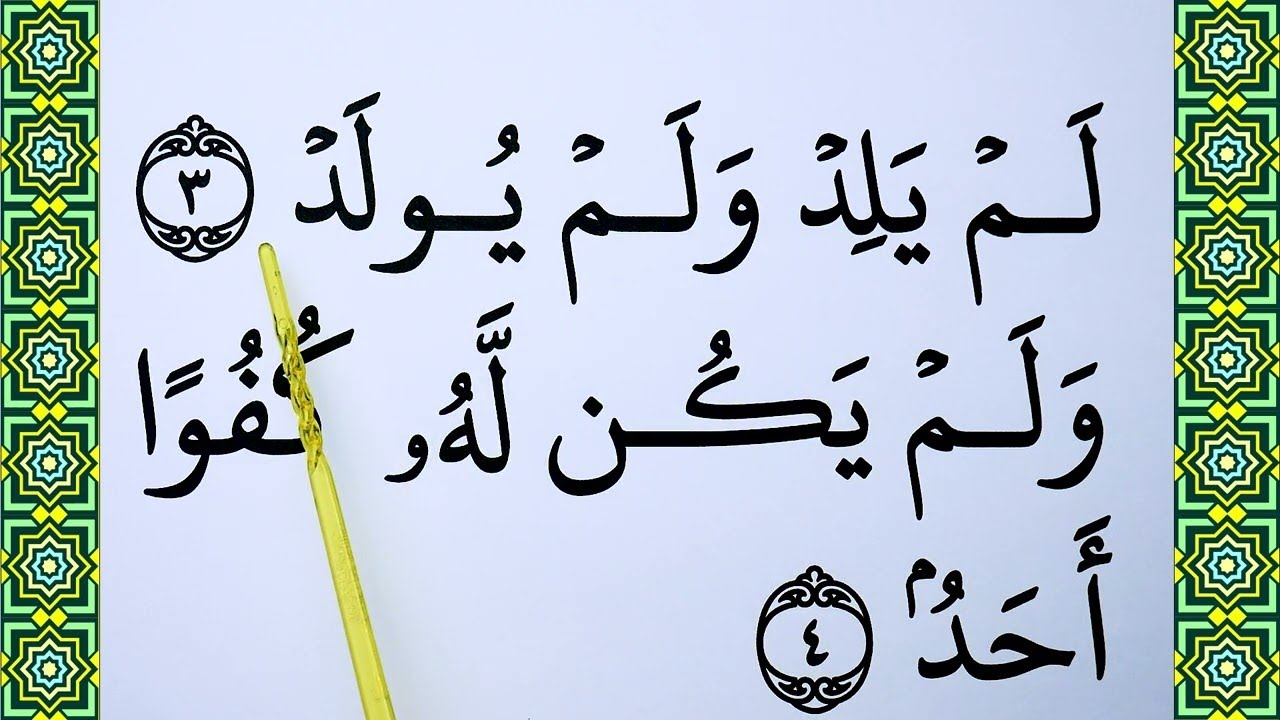 لَمۡ يَلِدۡ وَلَمۡ يُولَدۡ ٣
وَلَمۡ يَكُن لَّهُۥ كُفُوًا
أَحَدُۢ ٤